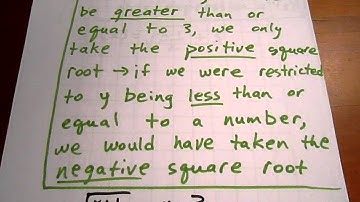 be greater than or
equal to 3, we only
take the positive square
root → if we were restricted
to y being less than or
equal to a number,
we would have taken the
negative square root